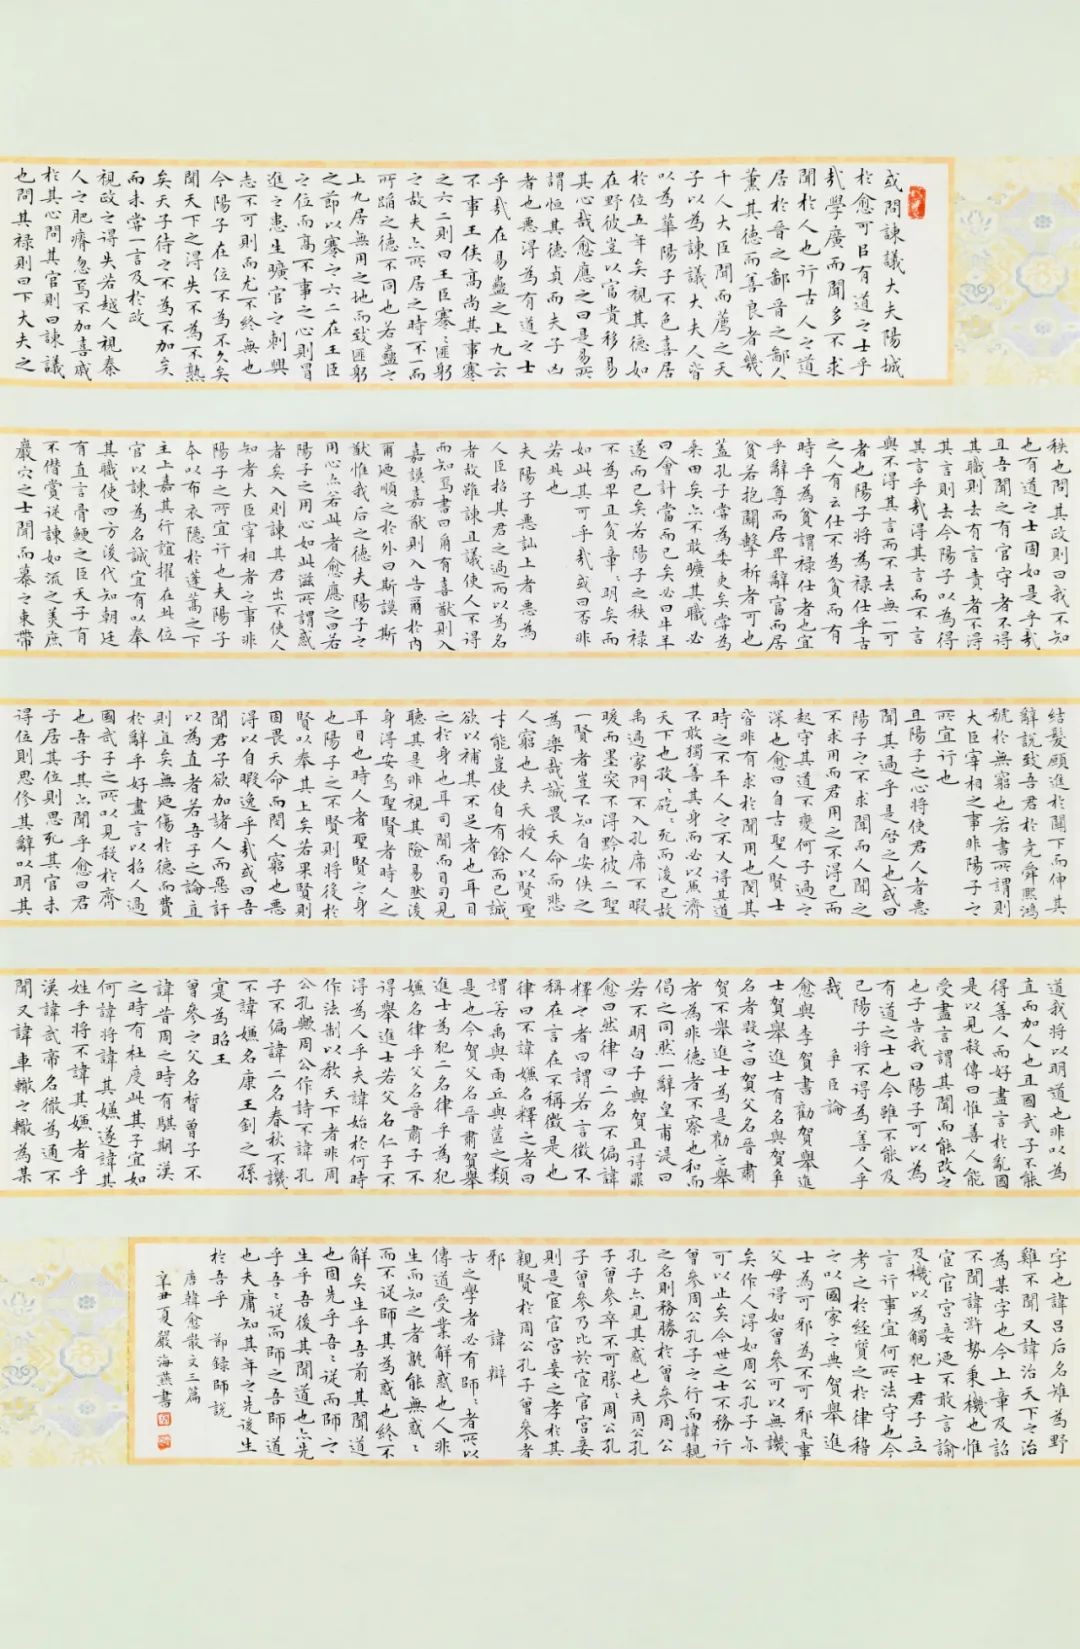 或問諫議大夫陽城
於愈可㠯有道之士乎
哉學廣而聞多不求
聞於人也行古人之道
居於晉之鄙晉之鄙人
薰其德而善良者幾
千人大臣聞而薦之天
子以為諫議大夫人皆
以為華陽子不色喜居
於位五年矣視其德如
在野彼豈以富貴移易
其心哉愈應之曰是易所
謂恒其德貞而夫子凶
者也惡淂為有道之士
乎哉在易蠱之上九云
不事王侯高尚其事蹇
之六二則曰王臣蹇〻匪躬
之故夫亦所居之時不一而
所蹈之德不同也若蠱之
上九居無用之地而致匪躬
之節以蹇之六二在王臣
之位而高不事之心則冒
進之患生曠官之刺興
志不可則而尤不終無也
今陽子在位不為不久矣
聞天下之得失不為不熟
矣天子待之不為不加矣
而未嘗一言及於政
視政之得失若越人視秦
人之肥瘠忽焉不加喜戚
於其心問其官則曰諫議
也問其祿則曰下大夫之
秩也問其政則曰我不知
也有道之士固如是乎哉
且吾聞之有官守者不得
其職則去有言責者不淂
其言則去今陽子以為得
其言乎哉得其言而不言
與不得其言而不去無一可
者也陽子將為祿仕乎古
之人有云仕不為貧而有
時乎為貧謂祿仕者也宜
乎辭尊而居卑辭富而居
貧若抱關擊柝者可也
蓋孔子嘗為委吏矣嘗為
乘田矣亦不敢曠其職必
曰會計當而已矣必曰牛羊
遂而已矣若陽子之秩祿
不為卑且貧章〻明矣而
如此其可乎哉或曰否非
若此也
夫陽子惡訕上者惡為
人臣招其君之過而以為名
者故雖諫且議使人不得
而知焉書曰爾有喜猷則入
嘉謨嘉猷則入告爾於內
爾廼順之於外曰斯謨斯
猷惟我后之德夫陽子之
用心亦若此者愈應之曰若
陽子之用心如此滋所謂惑
者矣入則諫其君出不使人
知者大臣宰相者之事非
陽子之所宜行也夫陽子
本以布衣隱於蓬蒿之下
主上嘉其行誼擢在此位
官以諫為名誠宜有以奉
其職使四方後代知朝廷
有直言骨鯁之臣天子有
不僭賞從諫如流之美庶
巖穴之士聞而慕之束帶
結髮願進於闕下而伸其
辭說致吾君於堯舜熙鴻
號於無窮也若書所謂則
大臣宰相之事非陽子之
所宜行也
且陽子之心將使君人者惡
聞其過乎是啓之也或曰
陽子之不求聞而人聞之
不求用而君用之不得已而
起守其道不變何子過之
深也愈曰自古聖人賢士
皆非有求於聞用也閔其
時之不平人之不乂得其道
不敢獨善其身而必以兼濟
天下也孜〻矻〻死而後已故
禹過家門不入孔席不暇
暖而墨突不得黔彼二聖
一賢者豈不知自安佚之
為樂哉誠畏天命而悲
人窮也夫天授人以賢聖
才能豈使自有餘而已誠
欲以補其不足者也耳目
之於身也耳司聞而目司見
聽其是非視其險易然後
身得安焉聖賢者時人之
耳目也時人者聖賢之身
也陽子之不賢則將役於
賢以奉其上矣若果賢則
固畏天命而閔人窮也惡
淂以自暇逸乎哉或曰吾
聞君子不欲加諸人而惡訐
以為直者若吾子之論直
則直矣無廼傷於德而費
於辭乎好盡言以招人過
國武子之所以見殺於齊
也吾子其亦聞乎愈曰君
子居其位則思死其官未
得位則思修其辭以明其
道我將以明道也非以為
直而加人也且國武子不能
得善人而好盡言於亂國
是以見殺傳曰惟善人能
受盡言謂其聞而能改之
也子告我曰陽子可以為
有道之士也今雖不能及
已陽子將不得為善人乎
哉　爭臣論
愈與李賀書勸賀舉進
士賀舉進士有名與賀爭
名者毀之曰賀父名晉肅
賀不舉進士為是勸之舉
者為非聽者不察也和而
倡之同然一辭皇甫湜曰
若不明白子與賀且得罪
愈曰然律曰二名不偏諱
釋之者曰謂若言徵不
稱在言在不稱徵是也
律曰不諱嫌名釋之者曰
謂若禹與雨丘與蓲之類
是也今賀父名晉肅賀舉
進士為犯二名律乎為犯
嫌名律乎父名晉肅子不
得舉進士若父名仁子不
淂為人乎夫諱始於何時
作法制以教天下者非周
公孔子歟周公作詩不諱孔
子不偏諱二名春秋不譏
不諱嫌名康王釗之孫
寔為昭王
曾參之父名晳曾子不
諱昔周之時有騏期漢
之時有杜度此其子宜如
何諱將諱其嫌遂諱其
姓乎將不諱其嫌者乎
漢諱武帝名徹為通不
聞又諱車轍之轍為某
字也諱呂后名雉為野
雞不聞又諱治天下之治
為某字也今上章及詔
不聞諱滸勢秉機也惟
宦官宮妾廼不敢言諭
及機以為觸犯士君子立
言行事宜何所法守也今
考之於經質之於律稽
之以國家之典賀舉進
士為可邪為不可邪凡事
父母得如曾參可以無譏
矣作人得如周公孔子亦
可以止矣今世之士不務行
曾參周公孔子之行而諱親
之名則務勝於曾參周公
孔子亦見其惑也夫周公孔
子曾參卒不可勝〻周公孔
子曾參乃比於宦官宮妾
則是宦官宮妾之孝於其
親賢於周公孔子曾參者
邪　諱辯
古之學者必有師〻者所以
傳道受業解惑也人非
生而知之者孰能無惑〻
而不從師其為惑也終不
解矣生乎吾前其聞道
也固先乎吾〻從而師之
生乎吾後其聞道也亦先
乎吾〻從而師之吾師道
也夫庸知其年之先後生
於吾乎　節錄師說
唐韓愈散文三篇
辛丑夏嚴海燕書